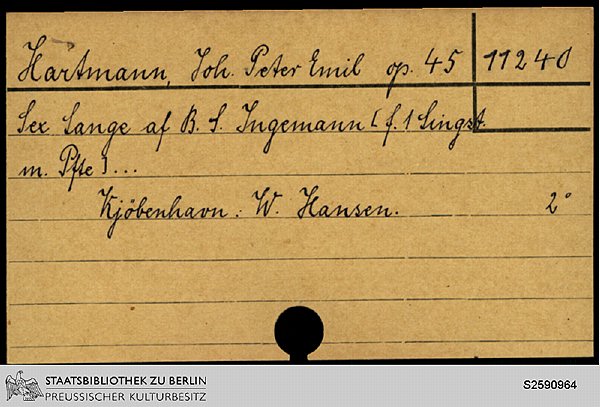 Hartmann, Joh. Peter Emil op. 45 11240
Sex Sange af B. S. Ingemann [ f. 1 Singst.
m. Pfte ] ...
Kjöbenhavn: W. Hansen. 2°
STAATSBIBLIOTHEK ZU BERLIN
PREUSSISCHER KULTURBESITZ
S2590964